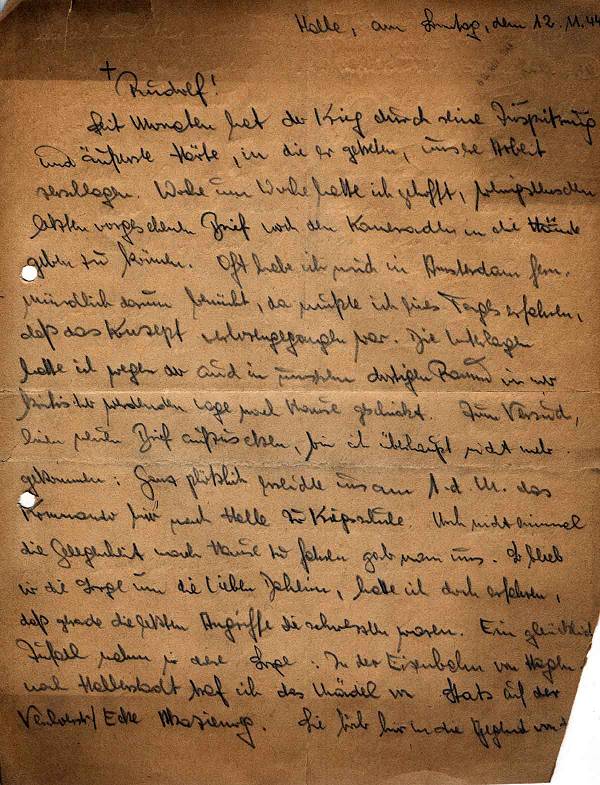 Halle, am Sonntag, dem 12.11.44
Rudolf!
Seit Monaten hat der Krieg durch seine Zuspitzung
und äußerste Härte, in die er getreten, unsere Arbeit
zerschlagen. Woche um Woche hatte ich gehofft, wenigstens den
letzten vorgesehenen Brief noch den Kameraden in die Hände
geben zu können. Oft habe ich mich in Amsterdam fern-
mündlich darum bemüht, da mußte ich eines Tages erfahren,
daß das Konzept verlorengegangen war. Die Unterlagen
hatte ich wegen der auch in unserem dortigen Raum immer
kritischer werdenden Lage nach Hause geschickt. Zum Versuch,
einen neuen Brief aufzusetzen, bin ich überhaupt nicht mehr
gekommen: Ganz plötzlich erreichte uns am 1. d. M. das
Kommando hier nach Halle zur Kriegsschule. Noch nicht einmal
die Gelegenheit nach Hause zu fahren gab man uns. So blieb
mir die Sorge um die Lieben Daheim, hatte ich doch erfahren,
daß gerade die letzten Angriffe die schwersten waren. Ein glücklicher
Zufall nahm mir diese Sorge: In der Eisenbahn von Hagen
nach Halberstadt traf ich das Mädel von Stats auf der
Ecke Sie fuhr hier in die Gegend von